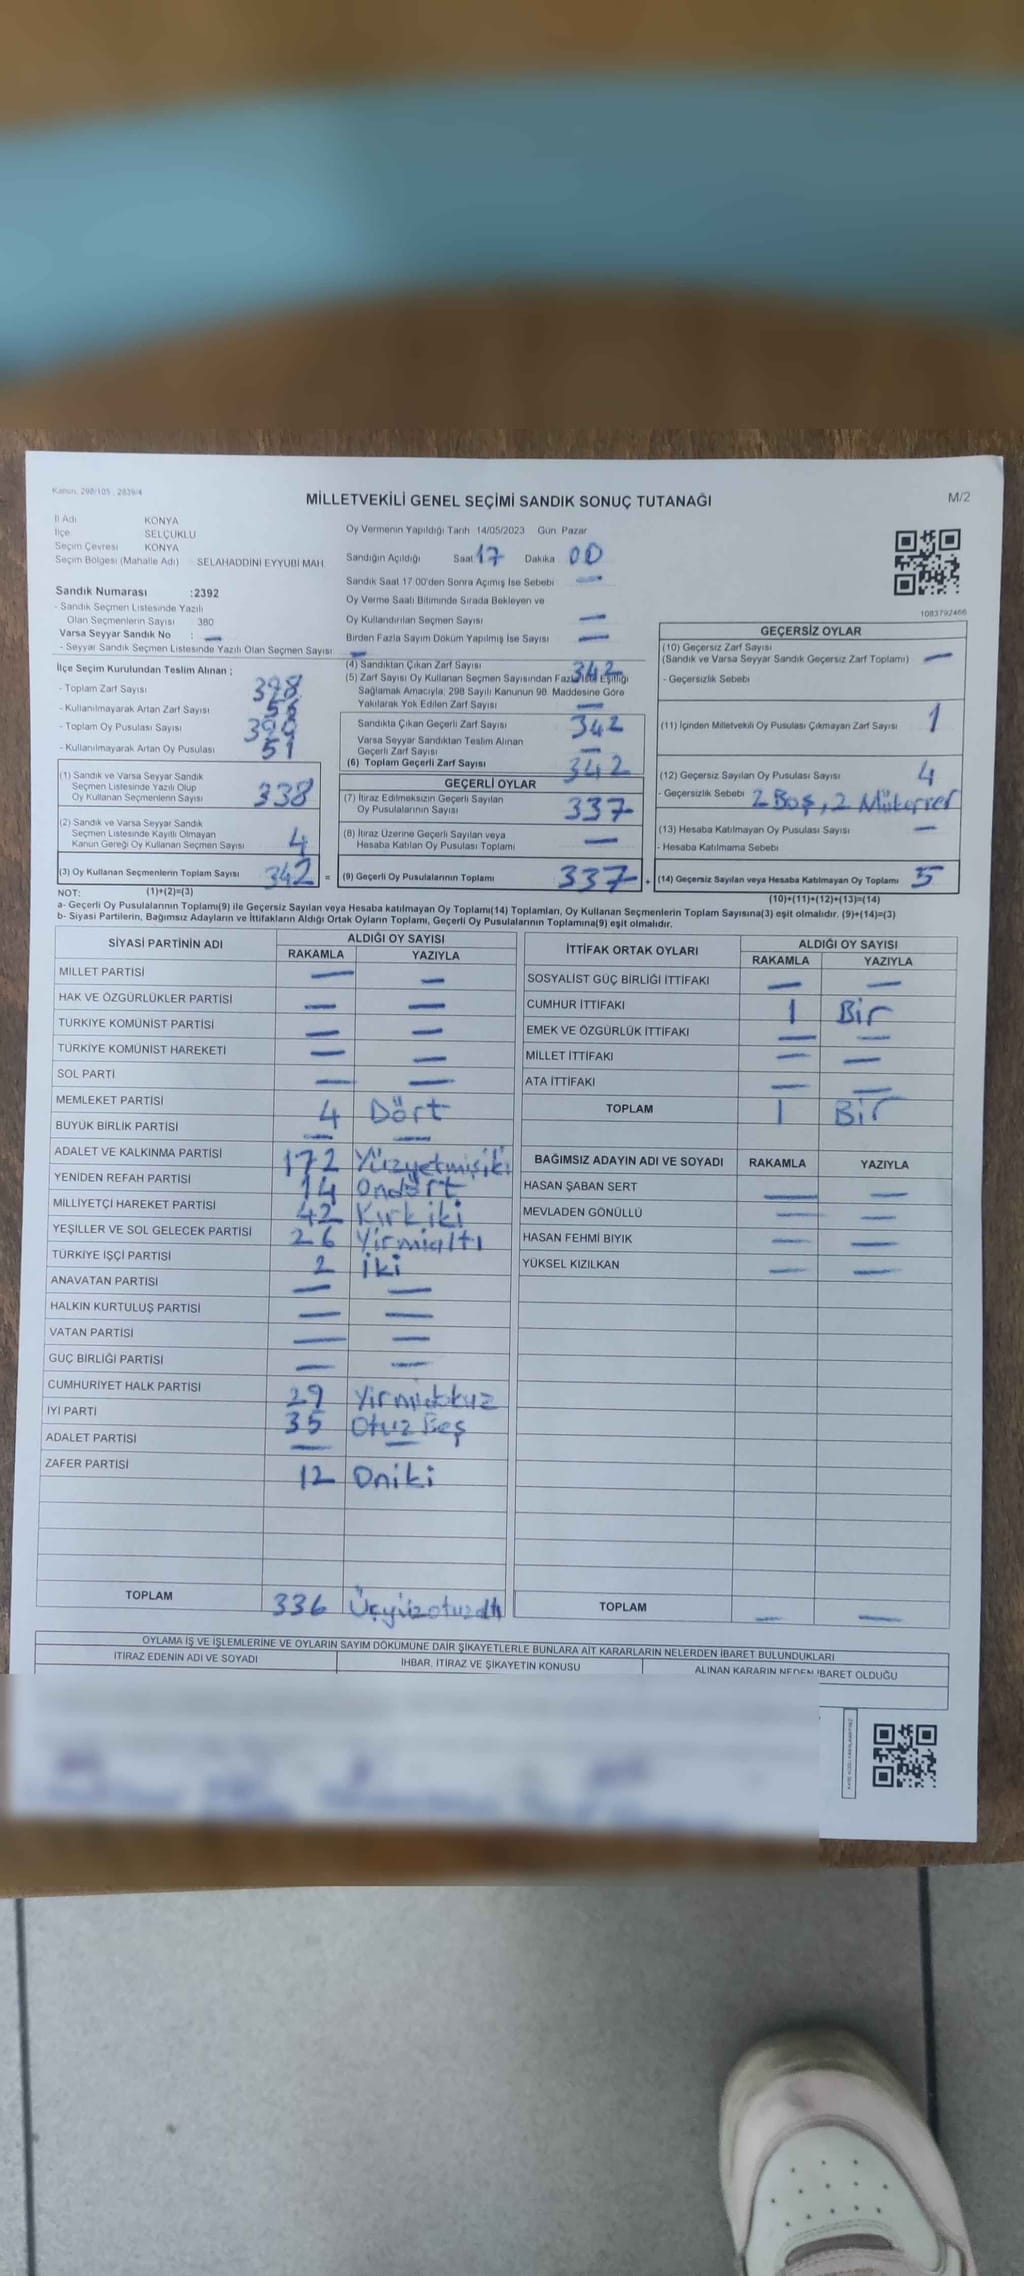 Kanun. 298/105 , 2839/4
MİLLETVEKİLİ GENEL SEÇİMİ SANDIK SONUÇ TUTANAĞI
M/2
İl Adı KONYA
İlçe SELÇUKLU
Seçim Çevresi KONYA
Seçim Bölgesi (Mahalle Adı) SELAHADDİNİ EYYUBİ MAH.
Sandık Numarası :2392
- Sandık Seçmen Listesinde Yazılı
Olan Seçmenlerin Sayısı 380
Varsa Seyyar Sandık No : —
- Seyyar Sandık Seçmen Listesinde Yazılı Olan Seçmen Sayısı —
Oy Vermenin Yapıldığı Tarih 14/05/2023 Gün Pazar
Sandığın Açıldığı Saat 17 Dakika 00
Sandık Saat 17:00'den Sonra Açılmış İse Sebebi —
Oy Verme Saati Bitiminde Sırada Bekleyen ve
Oy Kullandırılan Seçmen Sayısı —
Birden Fazla Sayım Döküm Yapılmış İse Sayısı —
1083792466
İlçe Seçim Kurulundan Teslim Alınan ;
- Toplam Zarf Sayısı 398
- Kullanılmayarak Artan Zarf Sayısı
- Toplam Oy Pusulası
- Kullanılmayarak Artan Oy Pusulası 51
(1) Sandık ve Varsa Seyyar Sandık
Seçmen Listesinde Yazılı Olup
Oy Kullanan Seçmenlerin Sayısı 338
(2) Sandık ve Varsa Seyyar Sandık
Seçmen Listesinde Kayıtlı Olmayan
Kanun Gereği Oy Kullanan Seçmen Sayısı 4
(3) Oy Kullanan Seçmenlerin Toplam Sayısı 342 =
(4) Sandıktan Çıkan Zarf Sayısı 342
(5) Zarf Sayısı Oy Kullanan Seçmen Sayısından Fazla İse Eşitliği
Sağlamak Amacıyla; 298 Sayılı Kanunun 98. Maddesine Göre
Yakılarak Yok Edilen Zarf Sayısı —
Sandıkta Çıkan Geçerli Zarf Sayısı 342
Varsa Seyyar Sandıktan Teslim Alınan
Geçerli Zarf Sayısı —
(6) Toplam Geçerli Zarf Sayısı 342
GEÇERLİ OYLAR
(7) İtiraz Edilmeksizin Geçerli Sayılan
Oy Pusulalarının Sayısı 337
(8) İtiraz Üzerine Geçerli Sayılan veya
Hesaba Katılan Oy Pusulası Toplamı —
(9) Geçerli Oy Pusulalarının Toplamı 337 +
GEÇERSİZ OYLAR
(10) Geçersiz Zarf Sayısı
(Sandık ve Varsa Seyyar Sandık Geçersiz Zarf Toplamı) —
- Geçersizlik Sebebi
(11) İçinden Milletvekili Oy Pusulası Çıkmayan Zarf Sayısı 1
(12) Geçersiz Sayılan Oy Pusulası Sayısı 4
- Geçersizlik Sebebi 2 Boş, 2 Mükerrer
(13) Hesaba Katılmayan Oy Pusulası Sayısı —
- Hesaba Katılmama Sebebi
(14) Geçersiz Sayılan veya Hesaba Katılmayan Oy Toplamı 5
NOT: (1)+(2)=(3)
(10)+(11)+(12)+(13)=(14)
a- Geçerli Oy Pusulalarının Toplamı(9) ile Geçersiz Sayılan veya Hesaba katılmayan Oy Toplamı(14) Toplamları, Oy Kullanan Seçmenlerin Toplam Sayısına(3) eşit olmalıdır. (9)+(14)=(3)
b- Siyasi Partilerin, Bağımsız Adayların ve İttifakların Aldığı Ortak Oyların Toplamı, Geçerli Oy Pusulalarının Toplamına(9) eşit olmalıdır.
SİYASİ PARTİNİN ADI ALDIĞI OY SAYISI
RAKAMLA YAZIYLA
MİLLET PARTİSİ — —
HAK VE ÖZGÜRLÜKLER PARTİSİ — —
TÜRKİYE KOMÜNİST PARTİSİ — —
TÜRKİYE KOMÜNİST HAREKETİ — —
SOL PARTİ — —
MEMLEKET PARTİSİ 4 Dört
BÜYÜK BİRLİK PARTİSİ — —
ADALET VE KALKINMA PARTİSİ 172 Yüzyetmişiki
YENİDEN REFAH PARTİSİ 14 Ondört
MİLLİYETÇİ HAREKET PARTİSİ 42 Kırkiki
YEŞİLLER VE SOL GELECEK PARTİSİ 26 Yirmialtı
TÜRKİYE İŞÇİ PARTİSİ 2 İki
ANAVATAN PARTİSİ — —
HALKIN KURTULUŞ PARTİSİ — —
VATAN PARTİSİ — —
GÜÇ BİRLİĞİ PARTİSİ — —
CUMHURİYET HALK PARTİSİ 29
İYİ PARTİ 35 Otuz Beş
ADALET PARTİSİ — —
ZAFER PARTİSİ 12 Oniki
TOPLAM 336
İTTİFAK ORTAK OYLARI ALDIĞI OY SAYISI
RAKAMLA YAZIYLA
SOSYALİST GÜÇ BİRLİĞİ İTTİFAKI — —
CUMHUR İTTİFAKI 1 Bir
EMEK VE ÖZGÜRLÜK İTTİFAKI — —
MİLLET İTTİFAKI — —
ATA İTTİFAKI — —
TOPLAM 1 Bir
BAĞIMSIZ ADAYIN ADI VE SOYADI RAKAMLA YAZIYLA
HASAN ŞABAN SERT — —
MEVLADEN GÖNÜLLÜ — —
HASAN FEHMİ BIYIK — —
YÜKSEL KIZILKAN — —
TOPLAM — —
OYLAMA İŞ VE İŞLEMLERİNE VE OYLARIN SAYIM DÖKÜMÜNE DAİR ŞİKAYETLERLE BUNLARA AİT KARARLARIN NELERDEN İBARET BULUNDUKLARI
İTİRAZ EDENİN ADI VE SOYADI İHBAR, İTİRAZ VE ŞİKAYETİN KONUSU ALINAN KARARIN NEDEN İBARET OLDUĞU